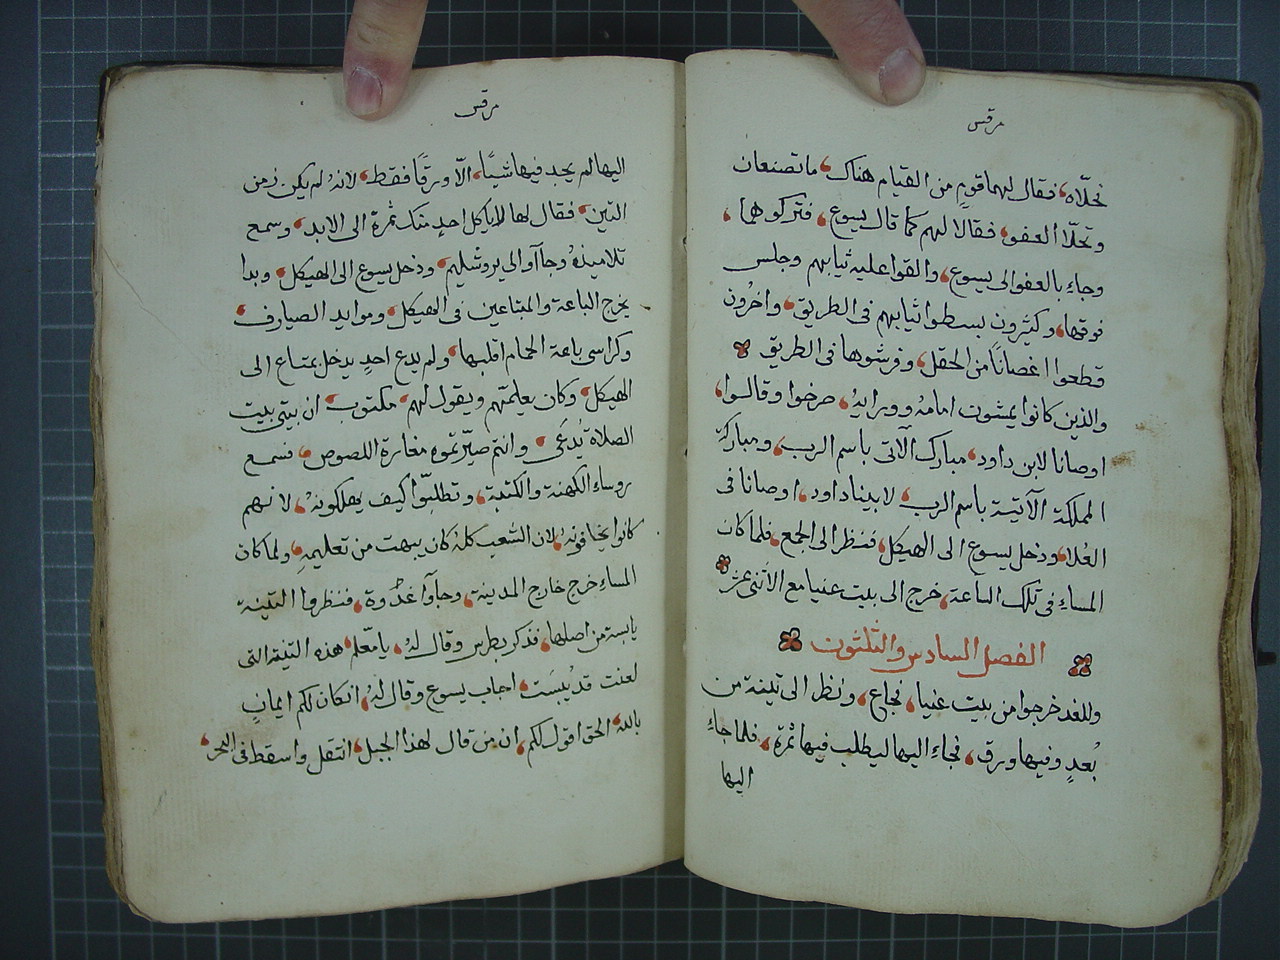 مرقس
نحلّاه، فقال لهما قوم من القيام هناك، ما تصنعان
وتحلّا العفو، فقالا لهم كما قال يسوع، فتركوهما،
وجاء بالعفو الى يسوع، والقوا عليه ثيابهم وجلس
فوقها، وكثيرون بسطوا ثيابهم فى الطريق، واخرُون
قطعوا اغصانًا من الحقل، وفرشوها فى الطريق
والذين كانوا يمشون امامهُ وورايهُ، صرخوا وقالوا،
اوصانا لابن داود، مبارك الآتى باسم الرب، ومباركة
المملكة الآتية باسم الرب، لابينا داود، اوصانا فى
العُلا، ودخل يسوع الى الهيكل، فنظر الى الجمع، فلما كان
المساء فى تلك الساعة، خرج الى بيت عنيا مع الأثنى عشر
الفصل السادس والثلثون
وللغد خرجوا من بيت عنيا، فجاع، ونظر الى تينة من
بُعدٍ وفيها ورق، فجاء اليها ليطلب فيها ثمرة، فلما جاء
اليها
مرقس
اليها لم يجد فيها شيًّا، الّا ورقًا فقط، لانهُ لم يكن زمن
التين، فقال لها لا ياكل احدٍ منك ثمرة الى الابد، وسمع
تلاميذهُ وجآوا الى يروشليم، ودخل يسوع الى الهيكل، وبدا
يخرج الباعة والمبتاعين فى الهيكل، وموايد الصيارف،
وكراسى باعة الحمام اقلبها، ولم يدع احدٍ يدخل بمتاع الى
الهيكل، وكان يعلمهم ويقول لهم، مكتوب، ان بيتى بيت
الصلاة يُدعَى، وانتم صيّرتموه مغارة اللصوص، فسمع
روساء الكهنة والكتبة، وتطلبّوا كيف يهلكونهُ، لانهم
كانوا يخافونهُ، لان الشعب كلهُ كان يبهت من تعليمهِ، ولما كان
المساء خرج خارج المدينة، وجآوا غدُوة، فنظروا التينة
يابسة من اصلها، فذكر بطرس وقال لهُ، يا معّلم، هذه التينة التى
لعنت قد يَبَست، اجاب يسوع وقال لهُ، ان كان لكم ايمانٍ
بالله، الحق اقول لكم، ان من قال لهذا الجبل، انتقل واسقط فى البحر،